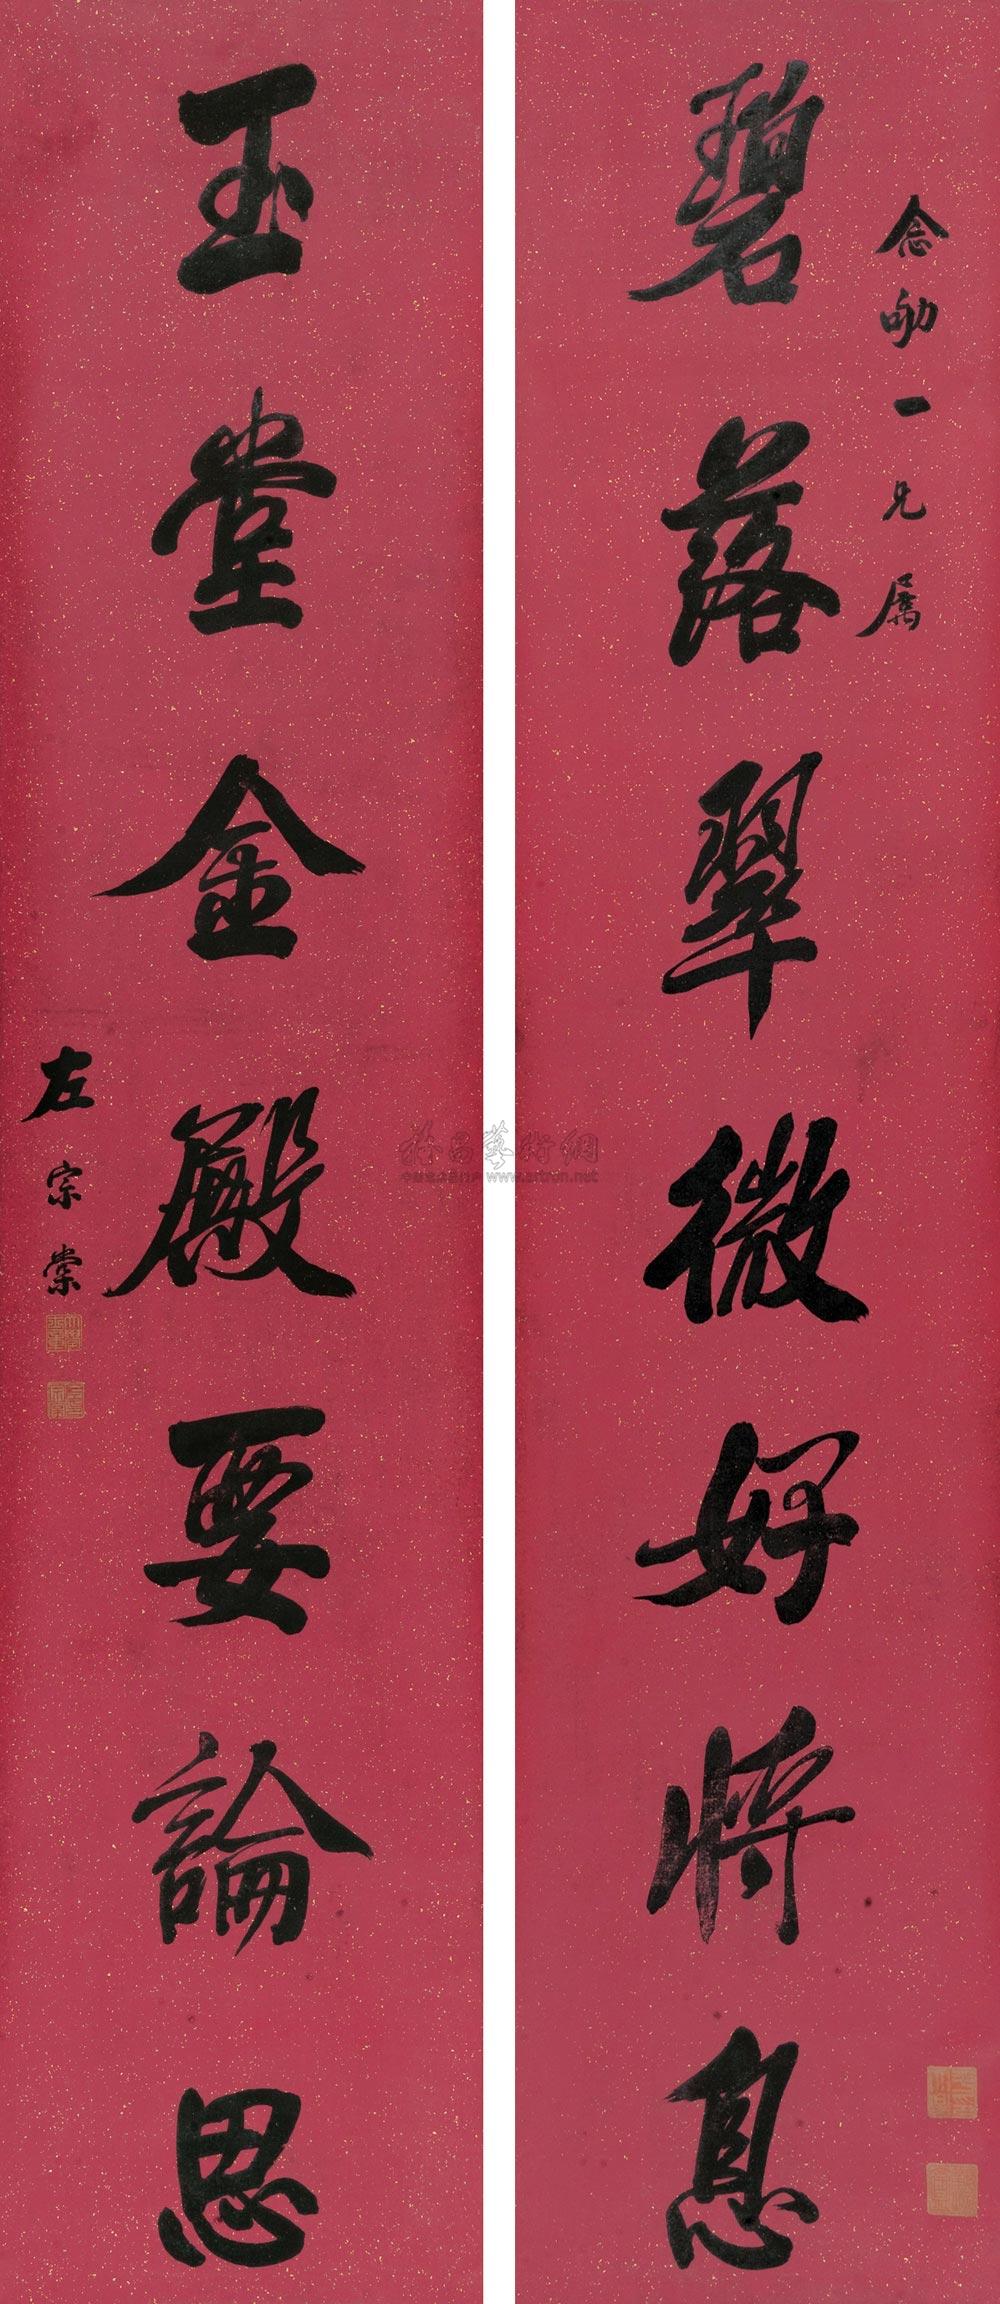 念劬一兄属
碧落翠微好將息
玉堂金殿要論思
左宗棠
www.artron.net